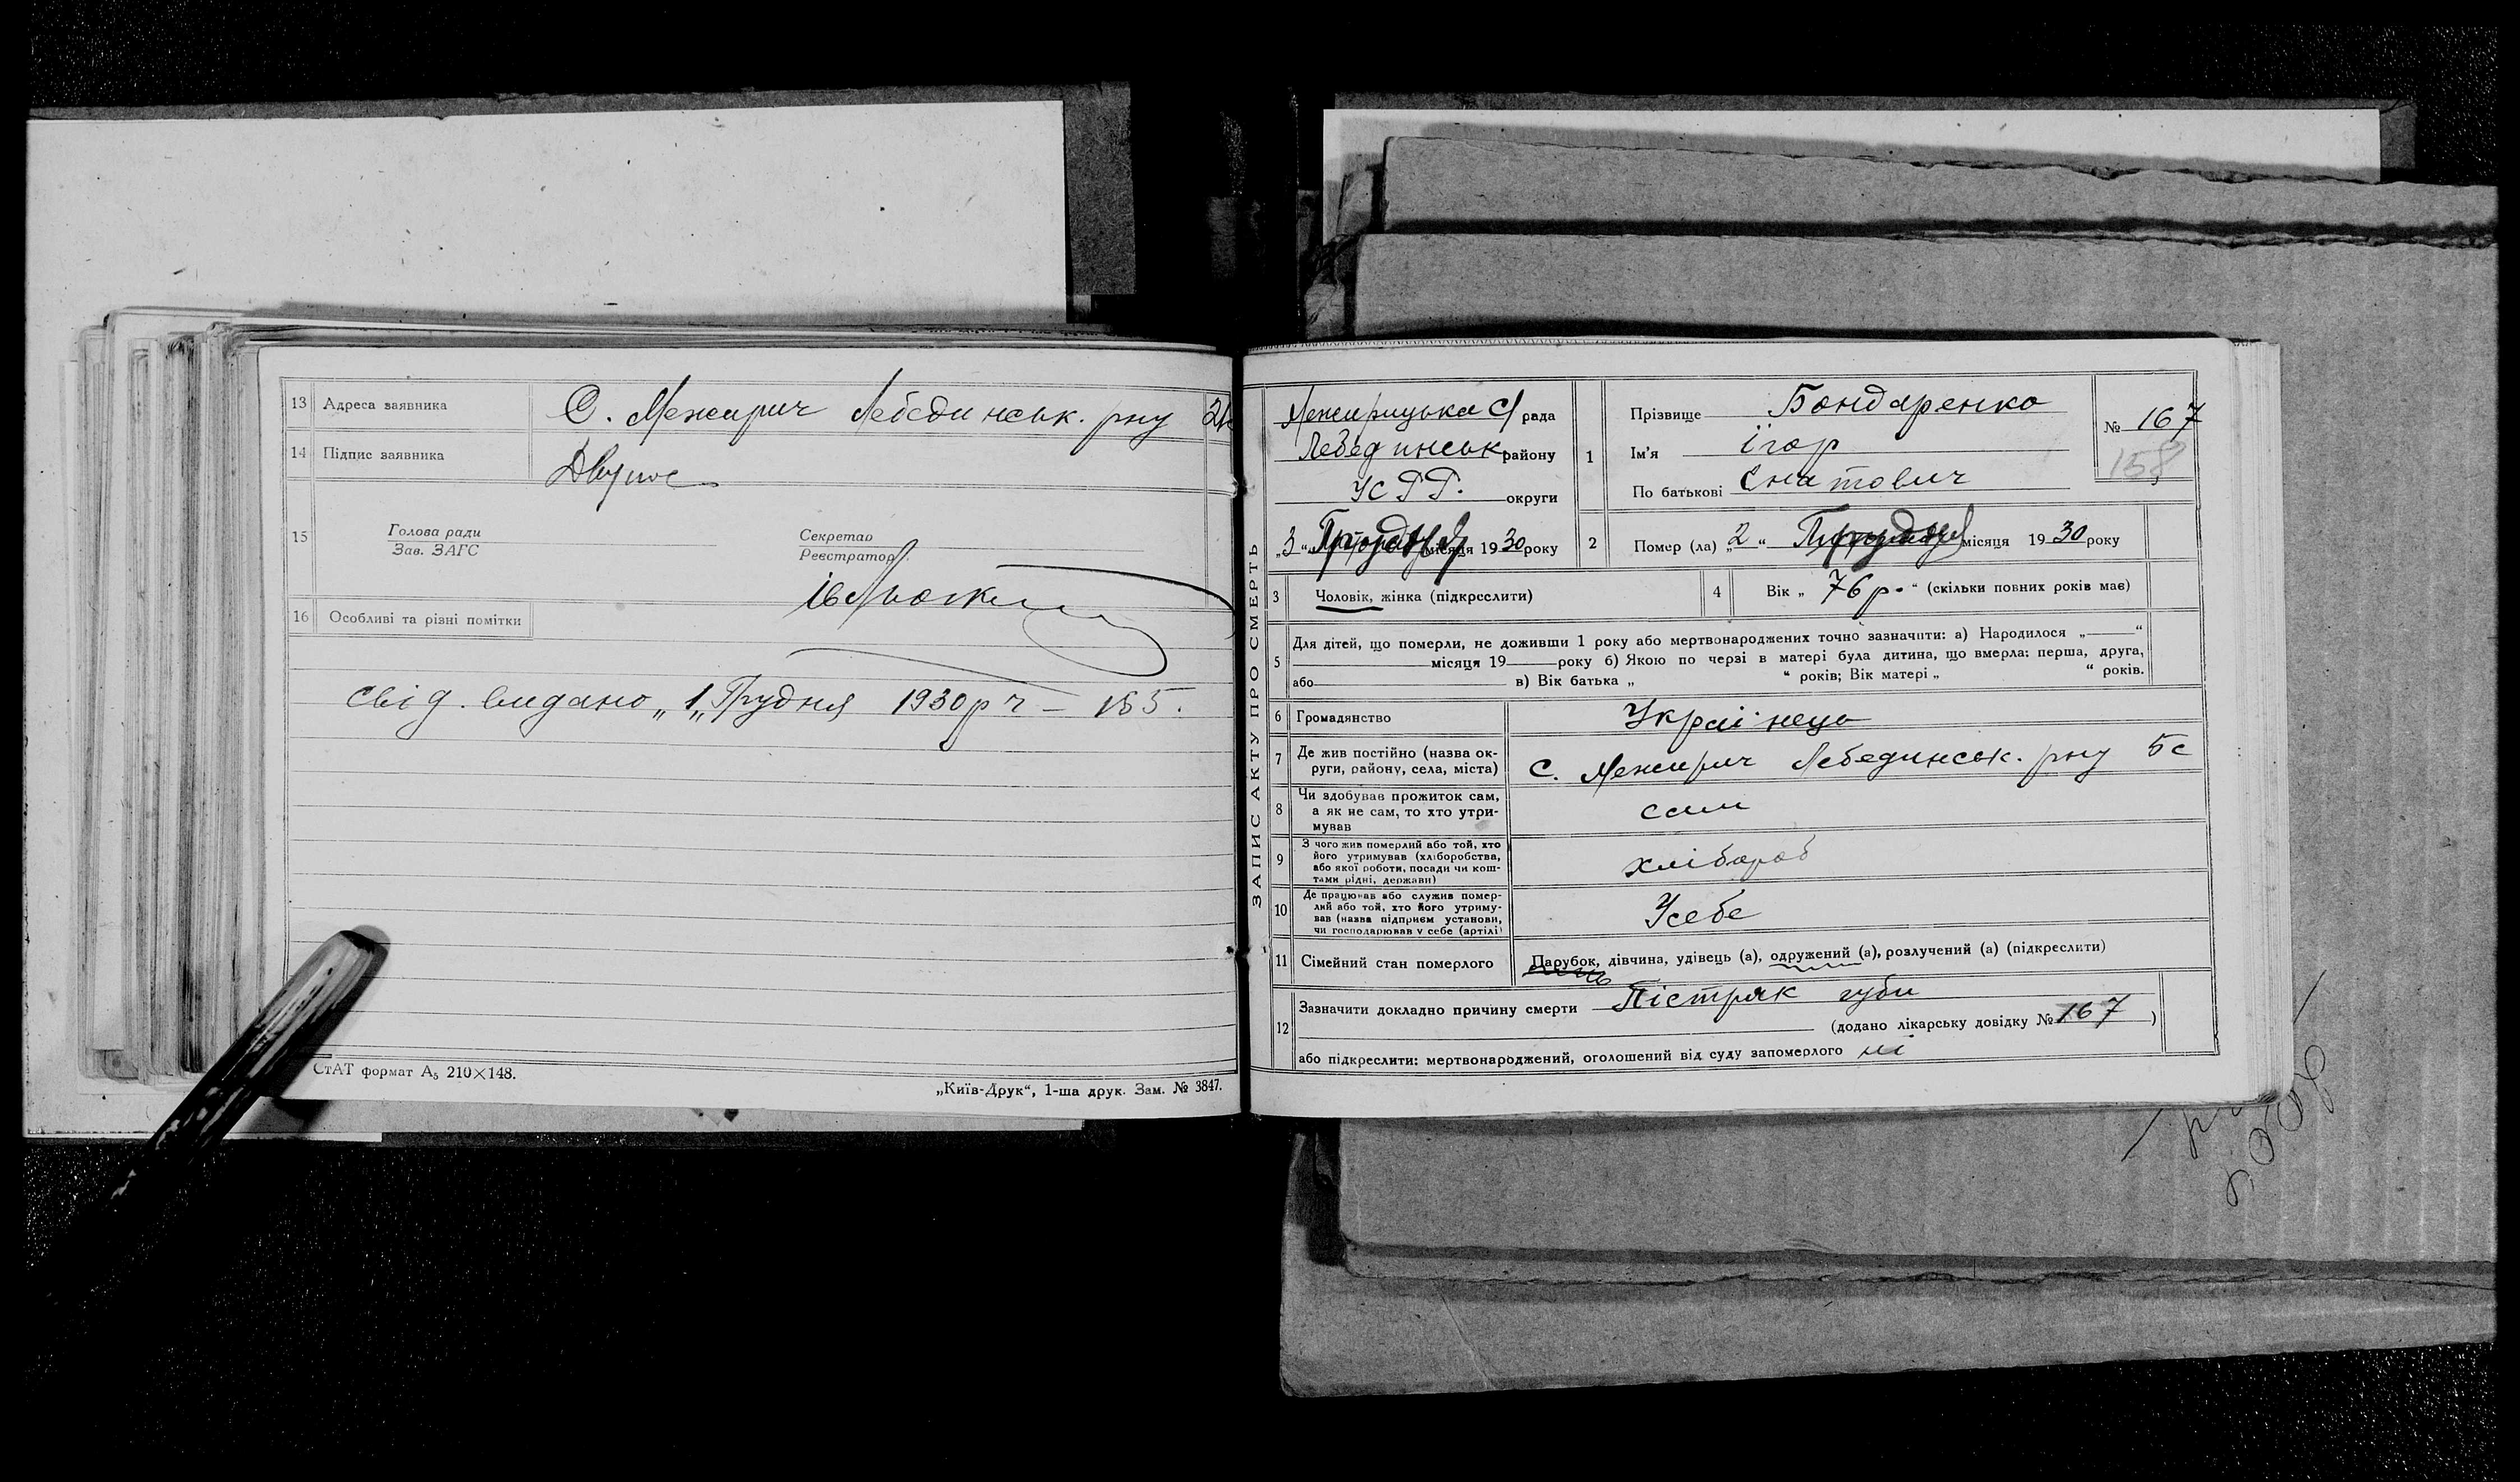 13 Адреса заявника С. Межирич Лебединськ. рну
14 Підпис заявника
15 Голова ради
Зав. ЗАГС
Секретар
Реєстратор
16 Особливі та різні помітки
Свід. видано „1„ Грудня 1930 р ч – 155.
СтАТ формат А₅ 210×148.
„Київ-Друк“, 1-ша друк. Зам. № 3847.
ЗАПИС АКТУ ПРО СМЕРТЬ
Межирицька С/рада
Лебединськ району
УСРР. округи
„3“ Грудня місяця 1930 року
1 Прізвище Бондаренко
Ім’я Ігор
По батькові Гнатович
№ 167
158
2 Помер (ла) „2“ Грудня місяця 1930 року
3 Чоловік, жінка (підкреслити)
4 Вік „76 р.“ (скільки повних років має)
5 Для дітей, що померли, не доживши 1 року або мертвонароджених точно зазначити: а) Народилося „——“
місяця 19—— року б) Якою по черзі в матері була дитина, що вмерла: перша, друга,
або в) Вік батька „ “ років; Вік матері „ “ років.
6 Громадянство Українець
7 Де жив постійно (назва ок-
руги, району, села, міста) С. Межирич Лебединськ. рну 5с
8 Чи здобував прожиток сам,
а як не сам, то хто утри-
мував сам
9 З чого жив померлий або той, хто
його утримував (хліборобства,
або якої роботи, посади чи кош-
тами рідні, держави) хлібороб
10 Де працював або служив помер-
лий або той, хто його утриму-
вав (назва підприєм установи,
чи господарював у себе (артілі) Усебе
11 Сімейний стан померлого Парубок, дівчина, удівець (а), одружений (а), розлучений (а) (підкреслити)
12 Зазначити докладно причину смерти Пістряк губи
(додано лікарську довідку № 167)
або підкреслити: мертвонароджений, оголошений від суду запомерлого ні